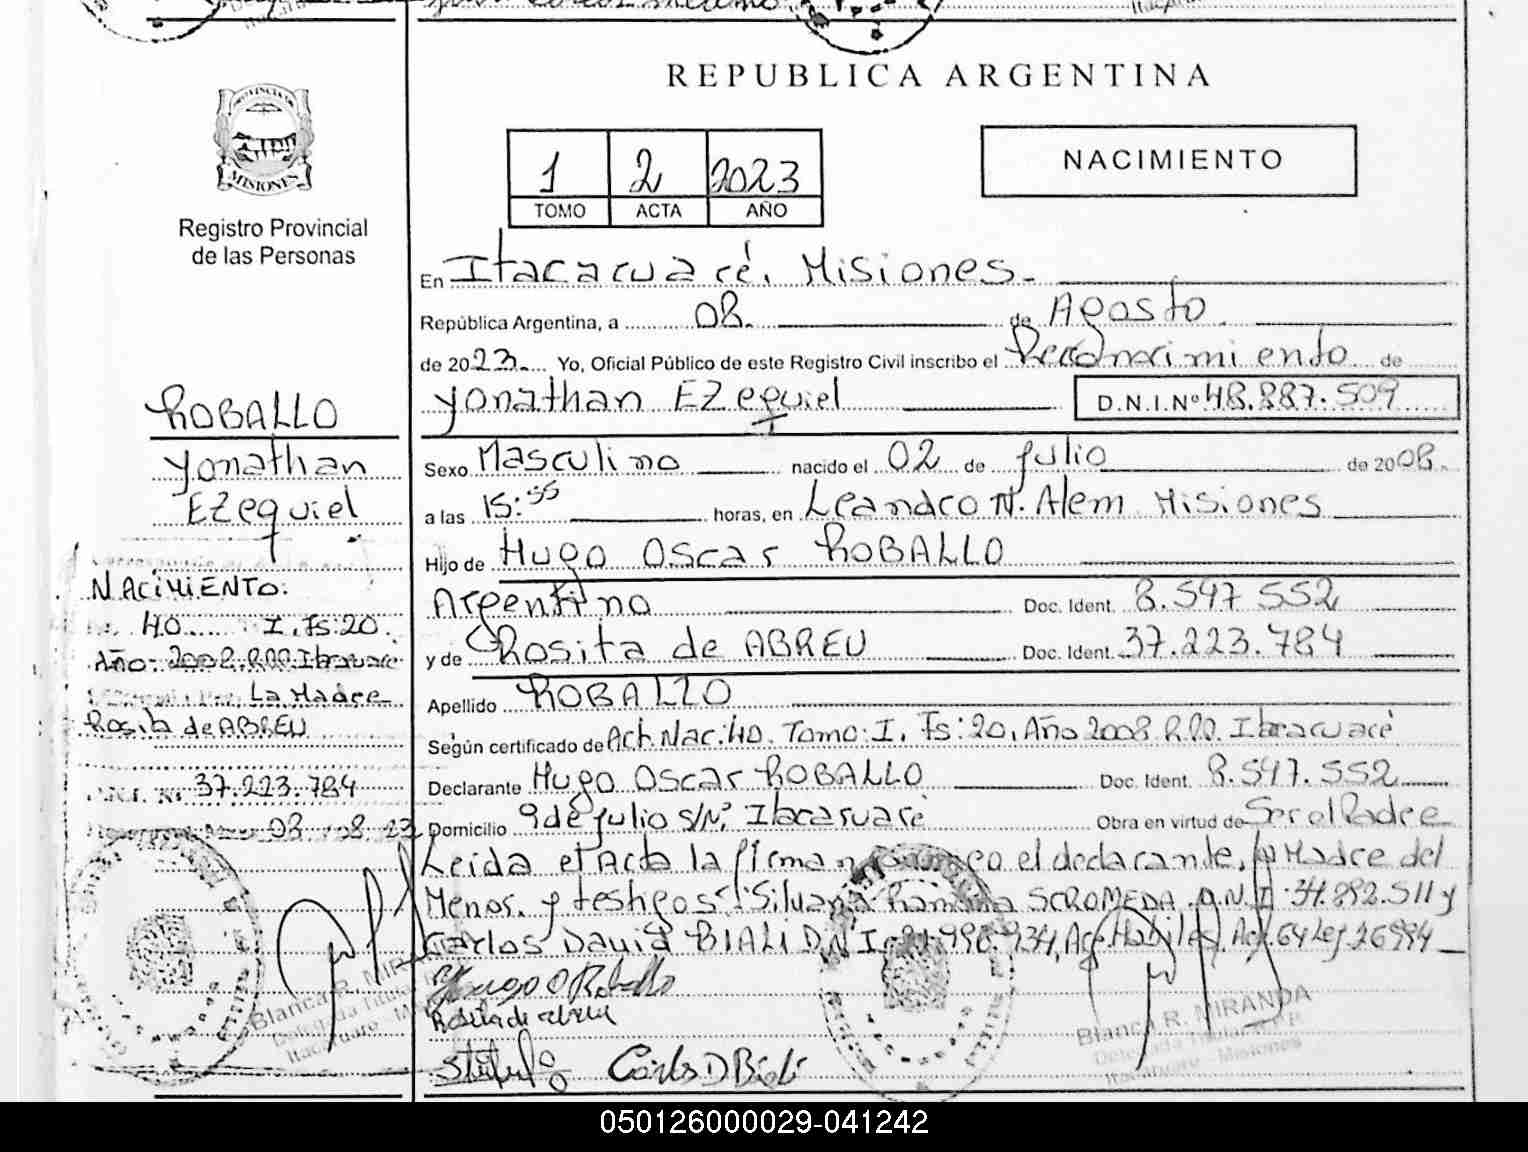 REPUBLICA ARGENTINA
PROVINCIA DE
MISIONES
Registro Provincial
de las Personas
1 2 2023
TOMO ACTA AÑO
NACIMIENTO
En Itacaruaré, Misiones
República Argentina, a 08 de Agosto
de 2023 Yo, Oficial Público de este Registro Civil inscribo el Reconocimiento de
Yonathan EZequiel D.N.I.Nº 48.887.509
Sexo Masculino nacido el 02 de Julio de 2008.
a las 15:55 horas, en Leandro N. Alem Misiones
Hijo de Hugo Oscar ROBALLO
Argentino Doc. Ident. 8.547 552
y de Rosita de ABREU Doc. Ident. 37.223.784
Apellido ROBALLO
Según certificado de Act. Nac: 40. Tomo: I. Fs: 20. Año 2008 R.P.P. Itacaruaré
Declarante Hugo Oscar ROBALLO Doc. Ident. 8.547.552
Domicilio 9 de Julio S/N; Itacaruaré Obra en virtud de Ser el Padre
Leida el Acta la firman el declarante, la Madre del
Menor, y testigos: Silvana Ramona D.N.I 34.892.511 y
Carlos David BIALI D.N.I 998.934, Ley 26994
Hugo O Roballo
Rosita de abreu
Carlos D Biali
Blanca R. MIRANDA
Delegada Titular
Itacaruaré - Misiones
ROBALLO
Yonathan
EZequiel
NACIMIENTO:
40 I. Fs: 20
Año: 2008 R.P.P. Itacaruaré
La Madre
Rosita de ABREU
37.223.784
08 / 08 23
Blanca R. MIRANDA
Delegada Titular
050126000029-041242